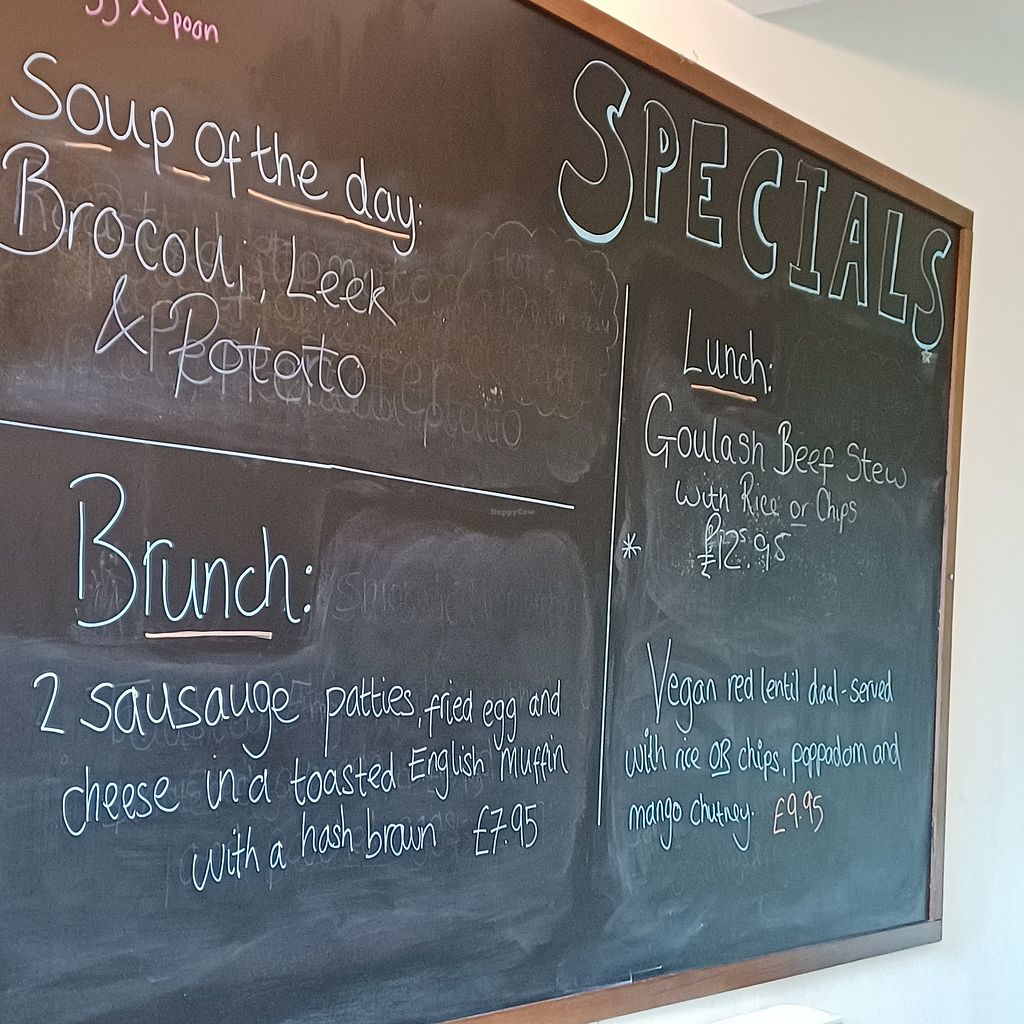 Spoon
Soup of the day:
Brocolli, Leek
& Potato
Brunch:
2 sausauge patties, fried egg and
cheese in a toasted English Muffin
with a hash brown £7.95
SPECIALS
Lunch:
Goulash Beef Stew
with Rice or Chips
* £12.95
Vegan red lentil daal - served
with rice OR chips, poppadom and
mango chutney. £9.95
HappyCow